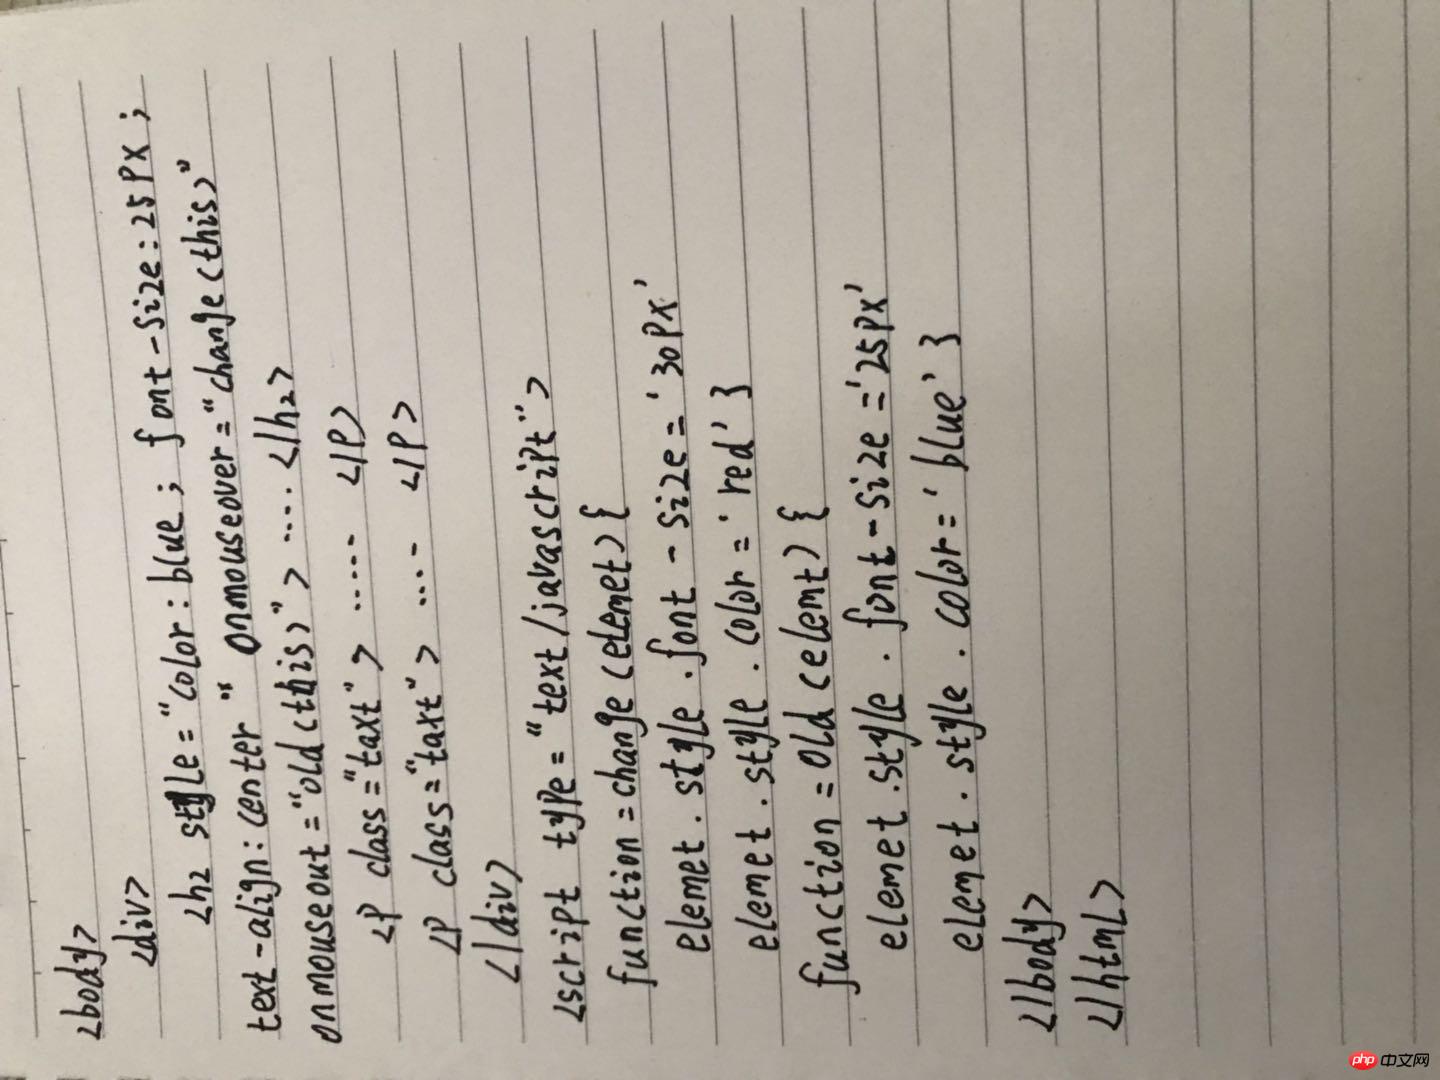 <body>
<div>
<h2 style="color:blue; font-size:25px;
text-align:center" onmouseover="change(this)"
onmouseout="old(this)"> .... </h2>
<p class="taxt"> ..... </p>
<p class="taxt"> .... </p>
</div>
<script type="text/javascript">
function=change(elemet){
elemet.style.font-size='30px'
elemet.style.color='red'}
function=old(elemt){
elemet.style.font-size='25px'
elemet.style.color='blue'}
</body>
</html>
php 中文网